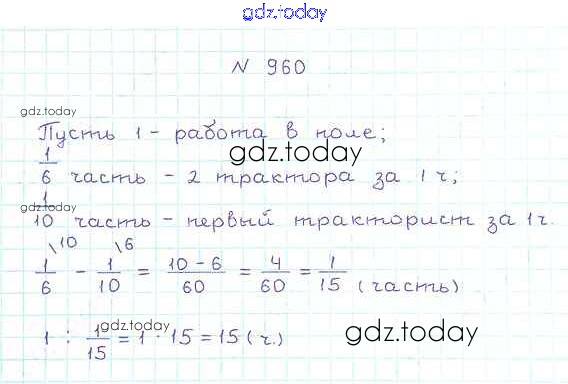 gdz.today
N 960
gdz.today
Пусть 1 - работа в поле;
gdz.today
1/6 часть - 2 трактора за 1 ч;
gdz.today
1/10 часть - первый тракторист за 1 ч.
1/6 \10 - 1/10 \6 = 10 - 6/60 = 4/60 = 1/15 (часть)
gdz.today
1 : 1/15 = 1 · 15 = 15 (ч.)
gdz.today